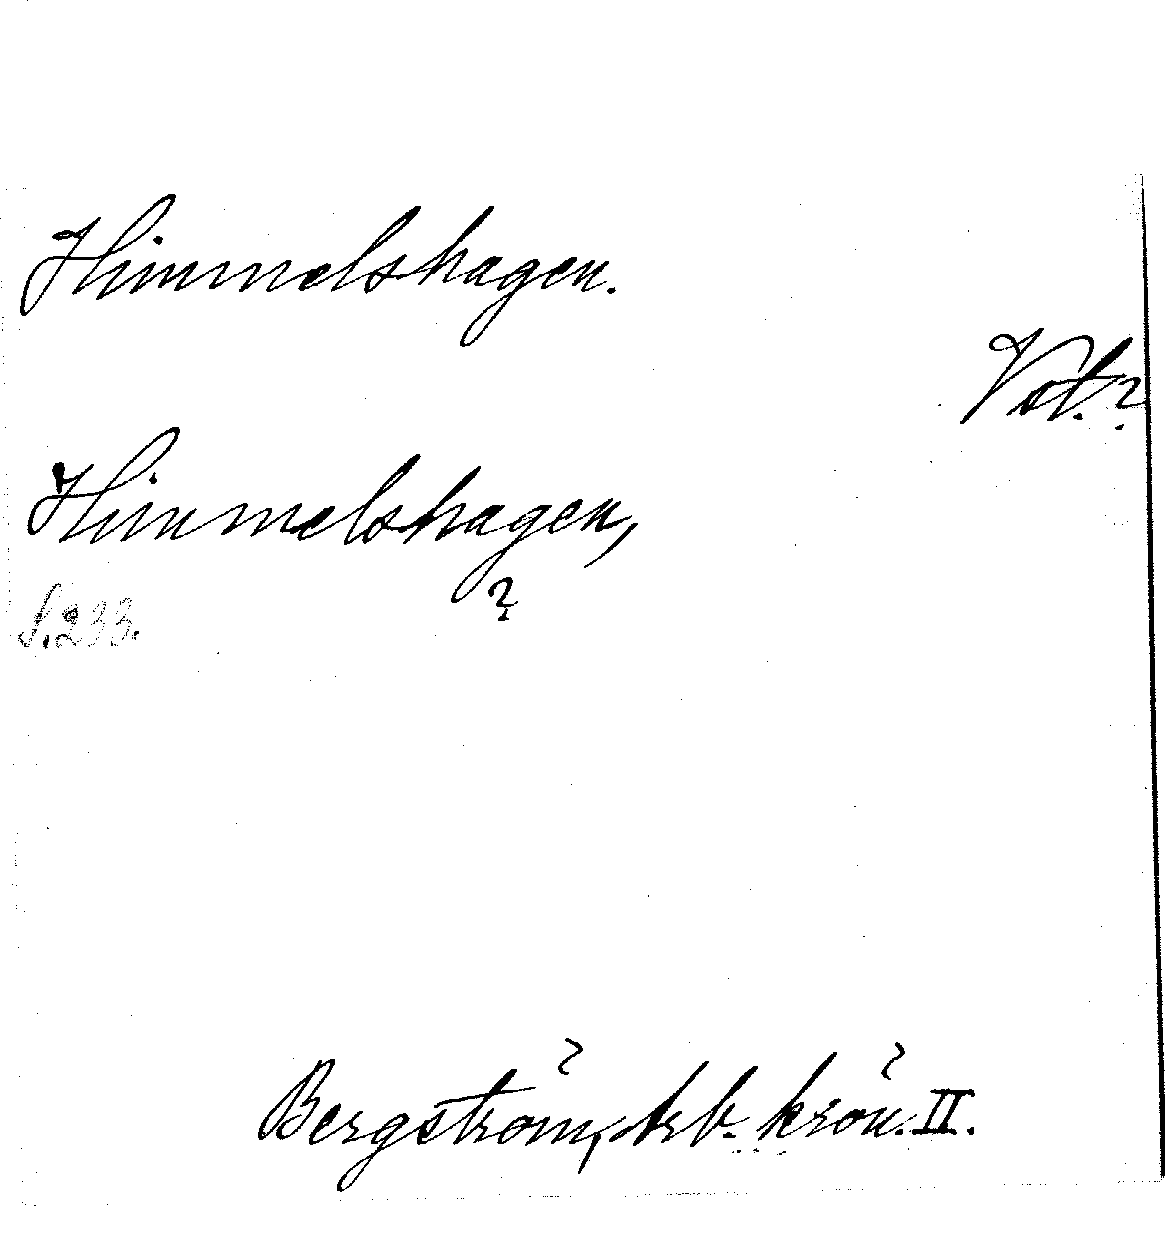 Himmelshagen.
Vst.?
Himmelshagen,
?
S. 233.
Bergström, Arb. krön. II.